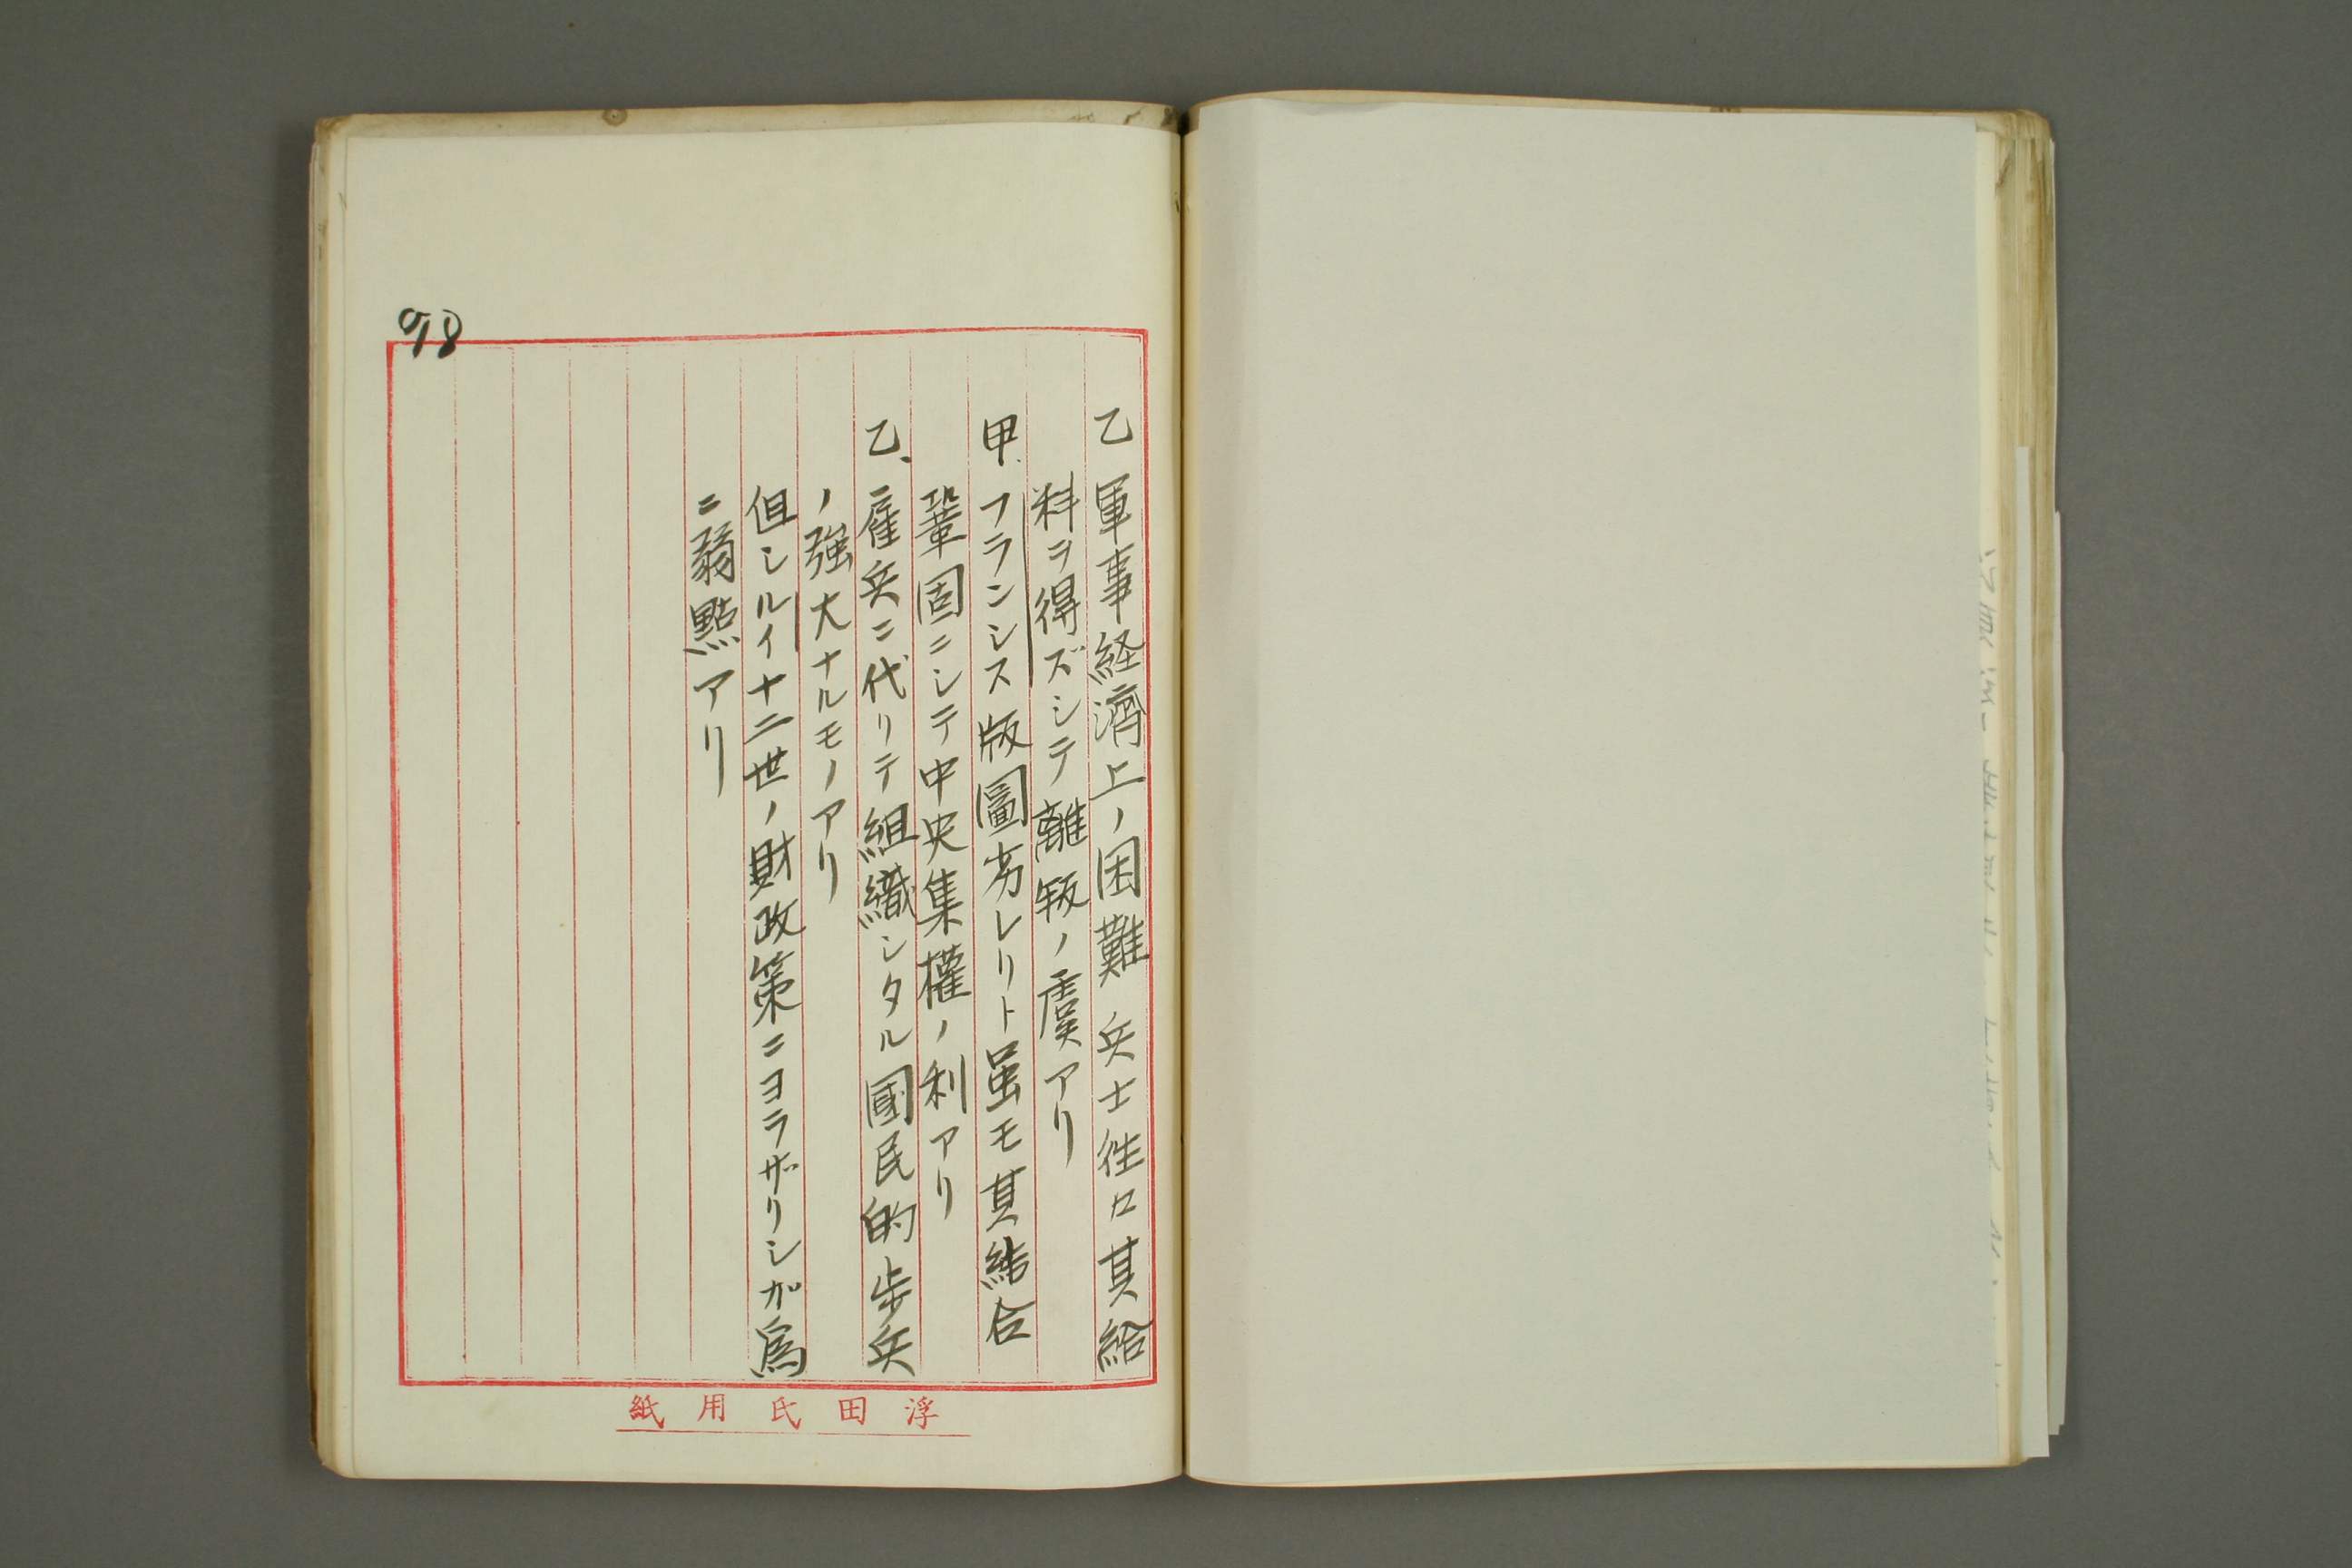 乙 軍事経濟上ノ困難 兵士徃々其給
料ヲ得ズシテ離叛ノ虞アリ
甲、フランシス版圖劣レリト虽モ其結合
鞏固ニシテ中央集權ノ利アリ
乙、雇兵ニ代リテ組織シタル國民的歩兵
ノ強大ナルモノアリ
但シルイ十二世ノ財政策ニヨラザリシガ為
ニ弱點アリ
98
浮田氏用紙